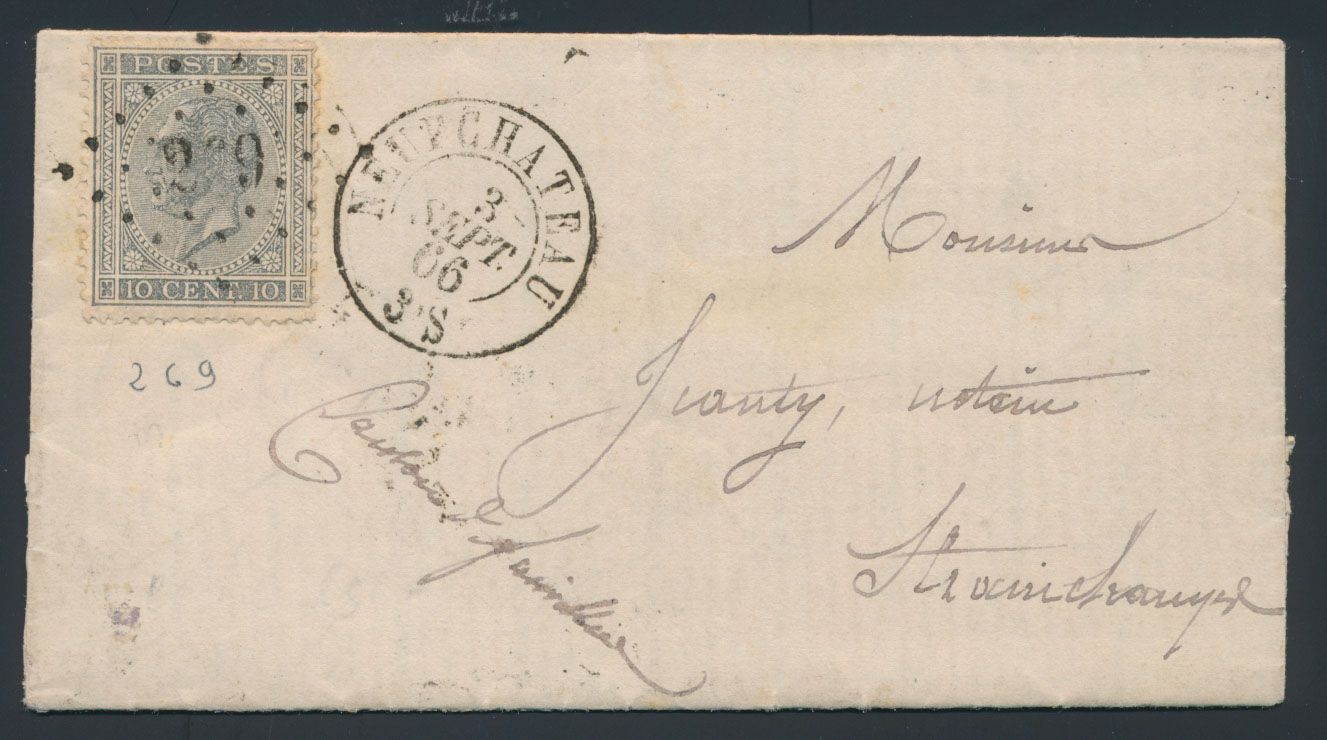 POSTES
269
10 CENT. 10
NEUFCHATEAU
3
SEPT.
66
3 S
269
Monsieur
Jeanty, notaire
Strainchamps
Canton de Fauvillers